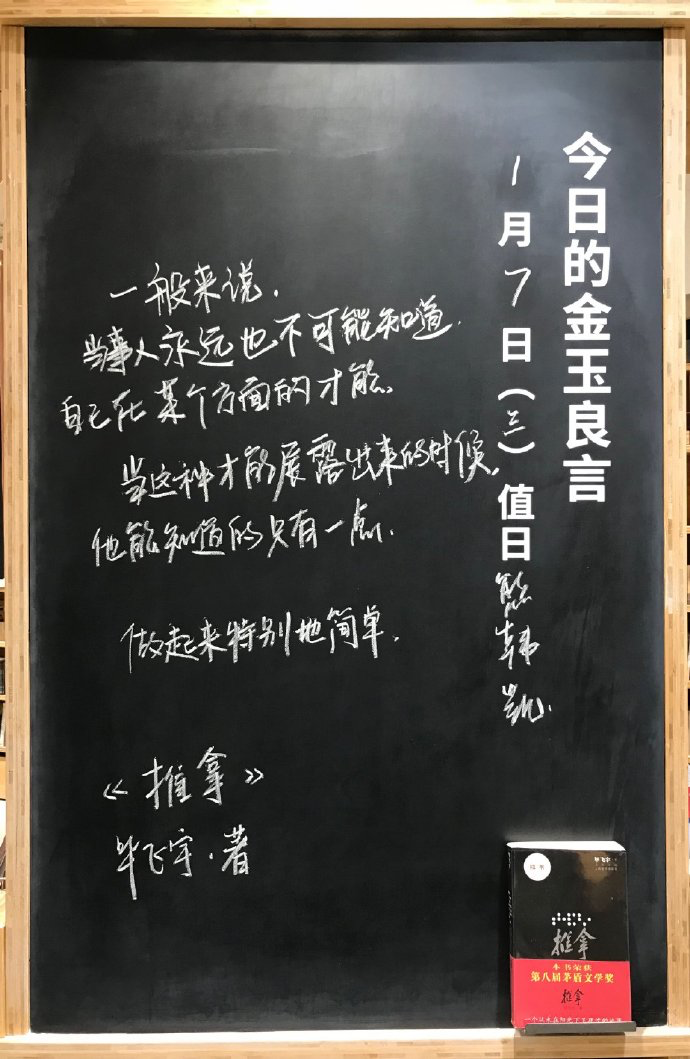 今日的金玉良言
1月7日（三）值日熊韩凯.
一般来说.
当事人永远也不可能知道.
自己在某个方面的才能.
当这种才能展露出来的时候,
他能知道的只有一点.
做起来特别地简单.
《推拿》
毕飞宇·著
毕飞宇
推拿
本书荣获
第八届茅盾文学奖
推拿